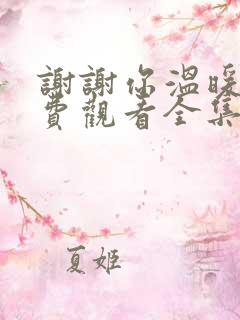 謝謝你溫暖
費觀看全集
夏姬